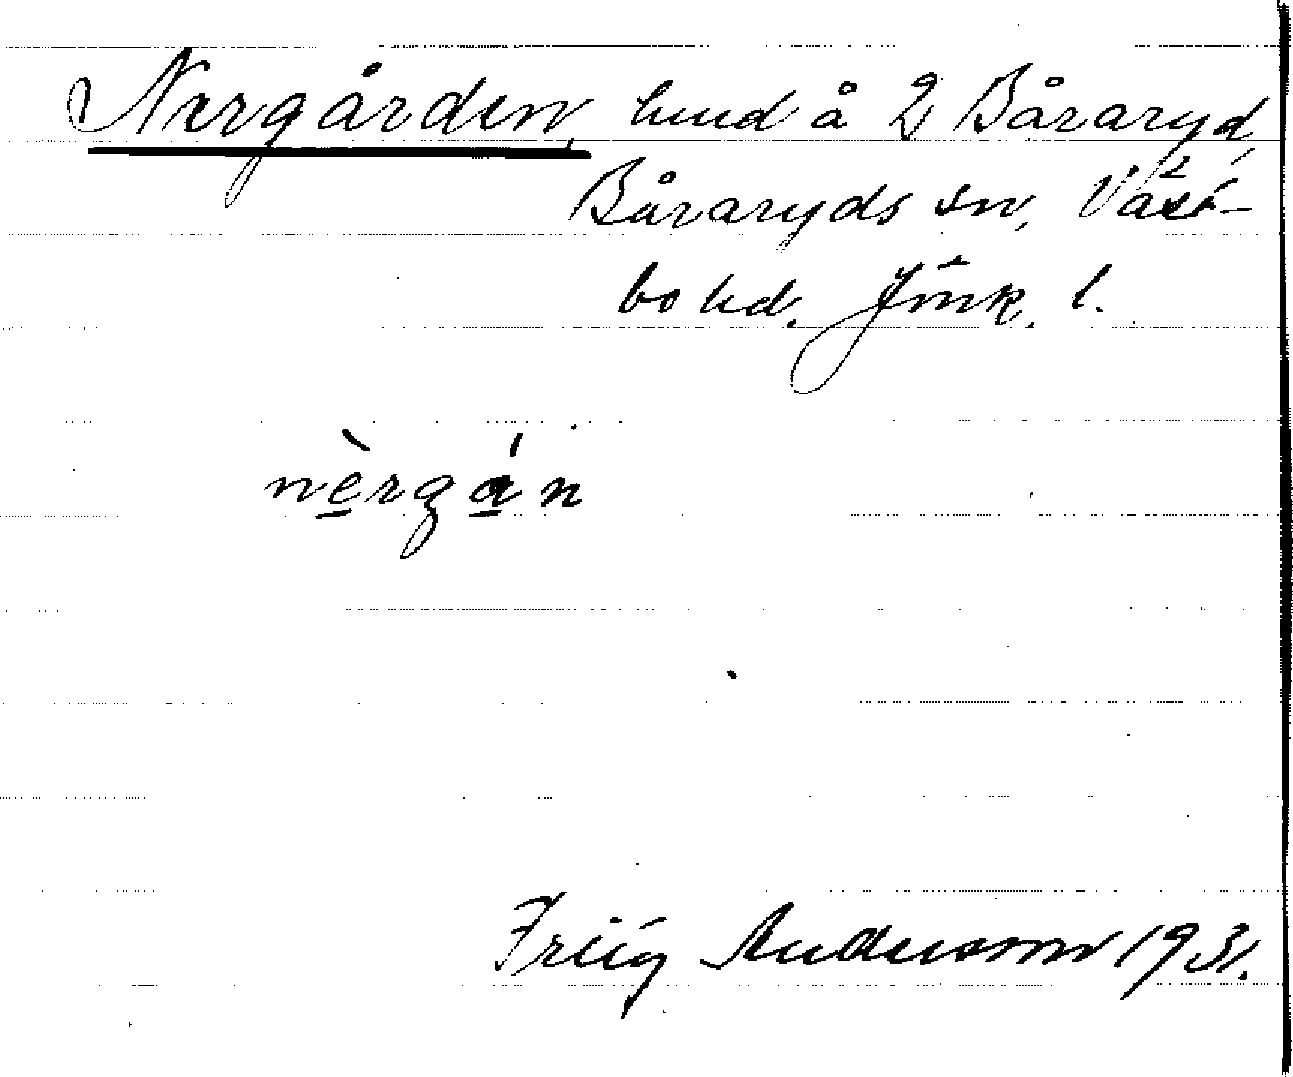 Nergården, hmd å 2 Båraryd,
Båraryds sn, Väst-
bo hd. Jönk. l.
nèrgán
Andersson 1931.